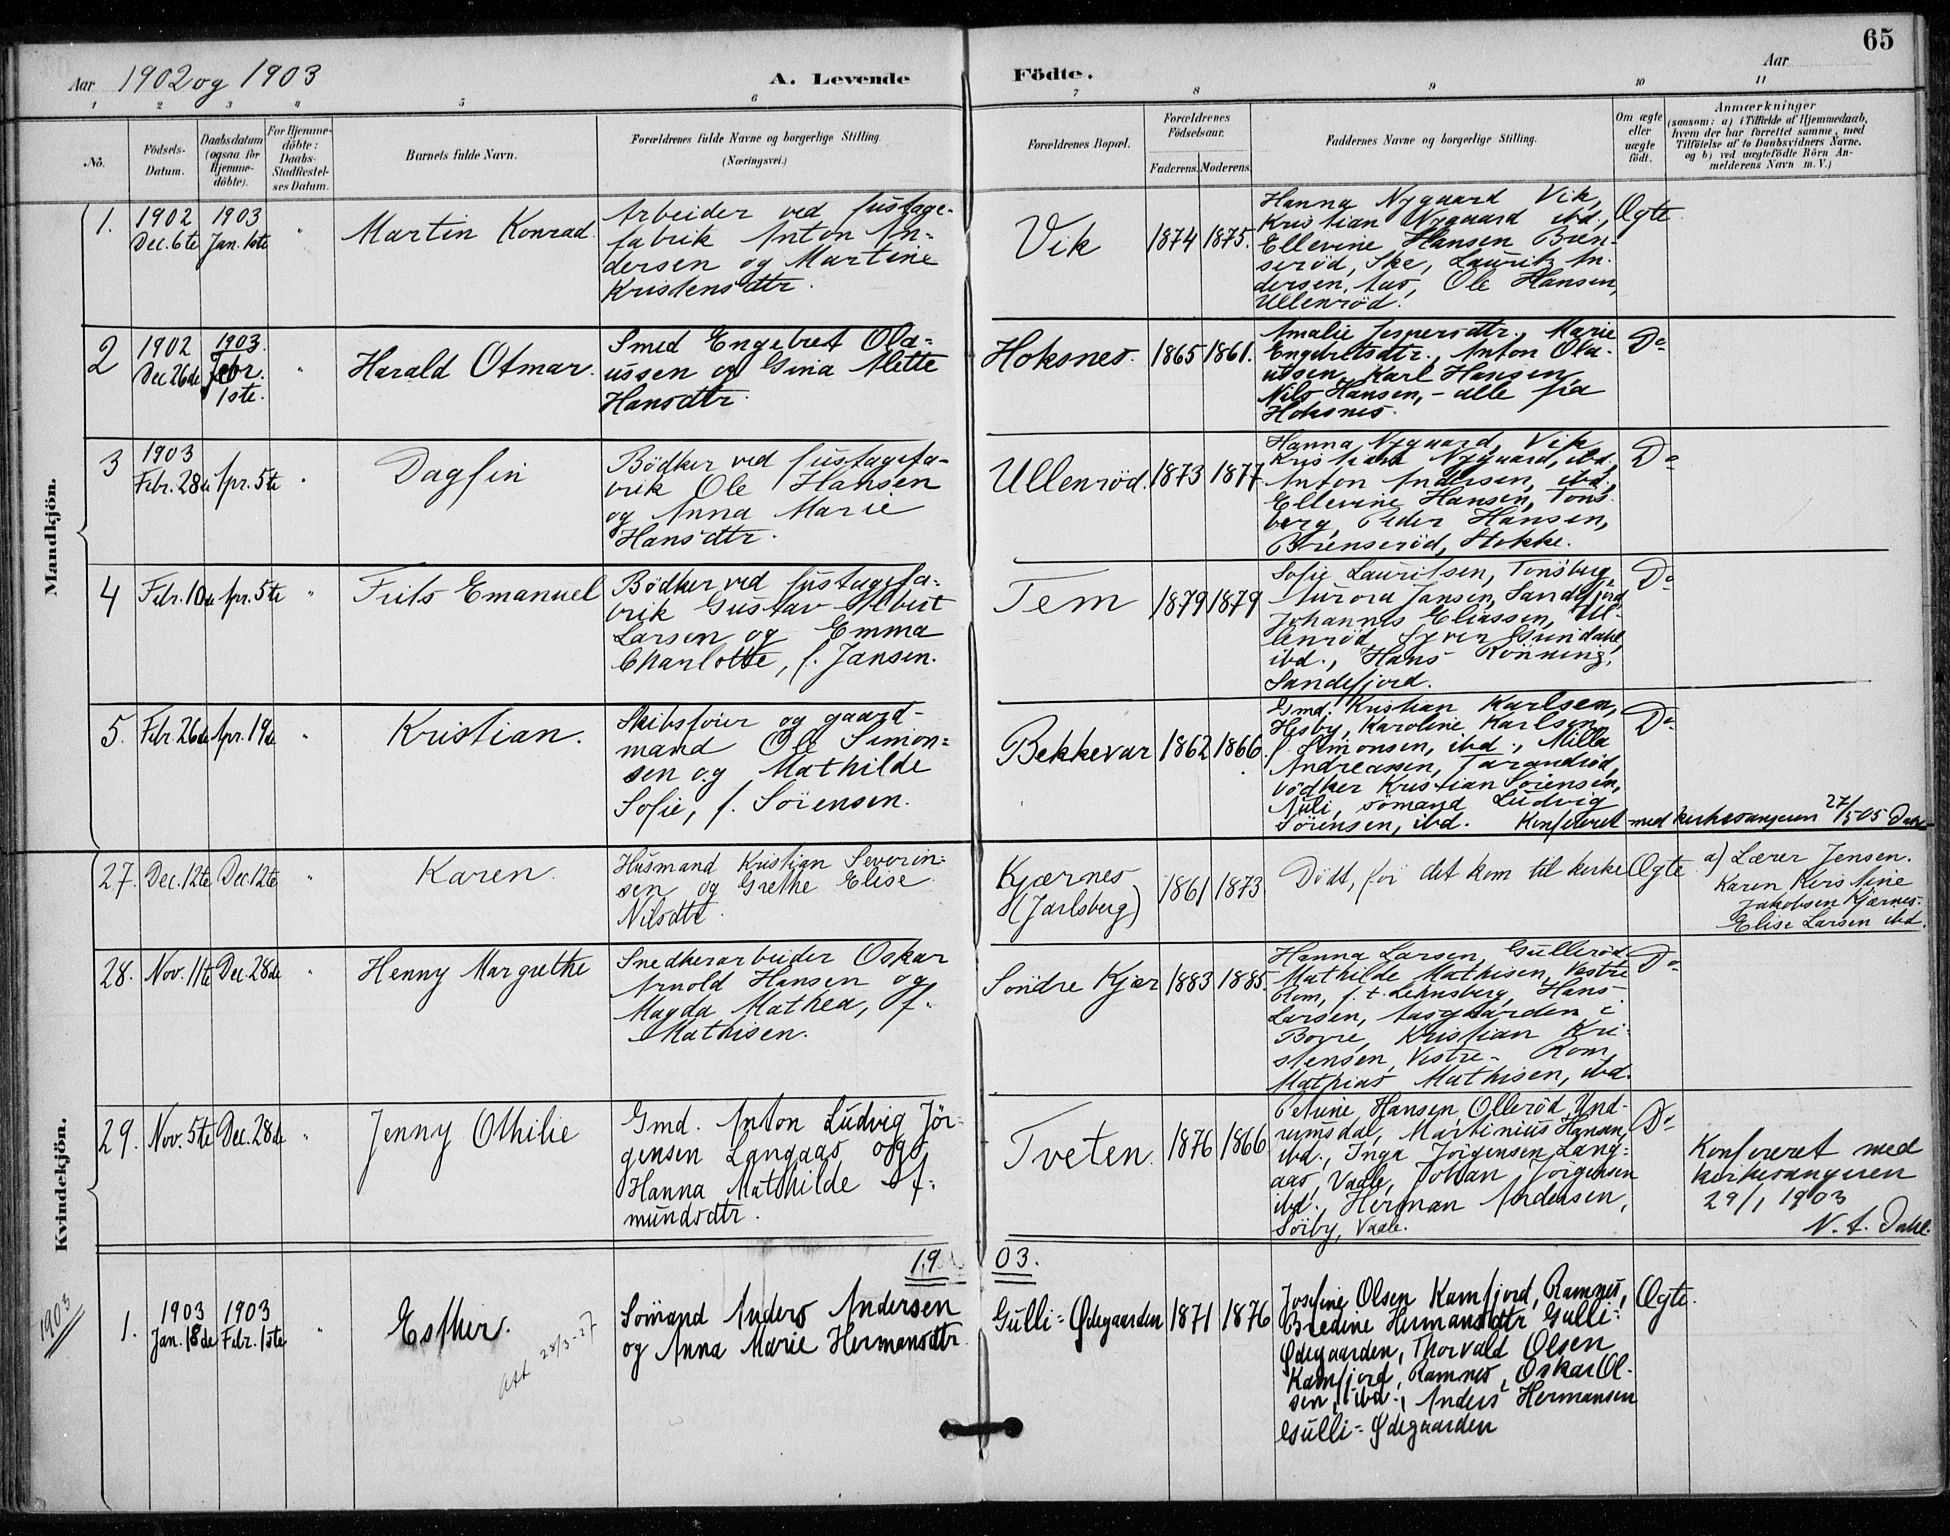 65
Aar 1902 og 1903
A. Levende Födte.
Aar
1 2 3 4 5 6 7 8 9 10 11
No.
Födsels-
Datum.
Daabsdatum
(ogsaa for
Hjemme-
döbte).
For Hjemme-
döbte:
Daabs-
Stadfæstel-
ses Datum.
Barnets fulde Navn.
Forældrenes fulde Navne og borgerlige Stilling.
(Næringsvei.)
Forældrenes Bopæl.
Forældrenes
Födselsaar.
Faderens. Moderens.
Faddernes Navne og borgerlige Stilling.
Om ægte
eller
uægte
födt.
Anmærkninger
(saasom: a) i Tilfælde af Hjemmedaab,
hvem der har forrettet samme, med
Tilföielse af to Daabsvidners Navne,
og b) ved uægtefödte Börn An-
melderens Navn m. V.)
Mandkjön.
1.
1902
Dec. 6te
1903
Jan. 1ste
"
Martin Konrad.
Arbeider ved fustage-
fabrik Anton An-
dersen og Martine
Kristensdtr.
Vik
1874
1875.
Hanna Nygaard Vik,
Kristian Nygaard ibd.,
Ellevine Hansen Bren-
serød, Ske, Lauritz An-
dersen, Aas, Ole Hansen,
Ullenrød.
Ægte.
2
1902
Dec 26de
1903.
Febr.
1ste.
"
Harald Otmar.
Smed Engebret Ola-
ussen og Gina Mette
Hansdtr.
Hoksnes.
1865
1861.
Amalie Jespersdtr., Marie
Engebretsdtr., Anton Ola-
ussen, Karl Hansen,
Nils Hansen, - alle fra
Hoksnes.
Do
3
1903
Febr. 28de
Apr. 5te
"
Dagfin
Bödker ved fustagefa-
brik Ole Hansen
og Anna Marie
Hansdtr.
Ullenrød.
1873
1877
Hanna Nygaard, Vik
Kristian Nygaard, ibd.,
Anton Andersen, ibd.,
Ellevine Hansen, Töns-
berg, Peder Hansen,
Brenserød, Stokke.
Do
4
Febr. 10de
Apr. 5te
"
Frits Emanuel
Bödker ved fustagefa-
brik Gustav Albert
Larsen og Emma
Charlotte, f. Jansen.
Tem
1879
1879
Sofie Lauritsen, Tönsberg,
Aurora Jansen, Sandefjord,
Johannes Eliassen, Ul-
lenrød, Syver Gundahl,
ibd., Hans Rönning,
Sandefjord.
Do
5.
Febr. 26de
Apr. 19de
"
Kristian.
Skibsfører og gaard-
mand Ole Simon-
sen og Mathilde
Sofie, f. Sörensen.
Bekkevar
1862
1866.
Gmd. Kristian Karlsen,
Hesby, Karoline Karlsen
f. Simonsen, ibd., Milla
Andreassen, Tarandrød,
bödker Kristian Sörensen,
Auli, sömand Ludvig
Sörensen, ibd.
Do
Konfereret med kirkesangeren 27/5 05 Dahl
Kvindekjön.
27.
Dec. 12te
Dec. 12te
"
Karen.
Husmand Kristian Severin-
sen og Grethe Elise
Nilsdtr.
Kjærnes
(Jarlsberg)
1861
1873
Død, før det kom til kirke
Ægte
a) Lærer Jensen.
Karen Kristine
Jakobsen Kjærnes.
Elise Larsen ibd.
28.
Nov. 11te
Dec. 28de
"
Henny Margrethe
Snedkerarbeider Oskar
Arnold Hansen og
Magda Mathea, f.
Mathisen.
Söndre Kjær
1883
1885.
Hanna Larsen, Gullerød,
Mathilde Mathisen, Vestre
Rom, f. t. Lehnsberg, Hans
Larsen, Aasgaarden i
Borre, Kristian Kri-
stensen, Vestre- Rom,
Mathias Mathisen, ibd.
Do
29.
Nov. 5te
Dec. 28de
"
Jenny Othilie
Gmd. Anton Ludvig Jör-
gensen Langaas og
Hanna Mathilde Af-
mundsdtr.
Tveten.
1876
1866
Petrine Hansen Ollerød, Und-
rumsdal, Martinius Hansen,
ibd., Inga Jörgensen Lang-
aas, Vaale, Johan Jörgensen
ibd., Herman Andersen,
Söiby, Vaale.
Do
Konfereret med
kirkesangeren
29/1 1903
N. A. Dahl.
1903.
1903
1.
1903
Jan. 18de
1903
Febr. 1ste
"
Esther.
Att 28/3-27
Sömand Anders Andersen
og Anna Marie Hermansdtr.
Gulli-Ødegaarden
1871
1876
Josefine Olsen Kamfjord, Ramnes,
Bredine Hermansdtr Gulli-
Ødegaarden, Thorvald Olsen
Kamfjord, Ramnes, Oskar Ol-
sen, ibd., Anders Hermansen
Gulli-Ødegaarden
Ægte.